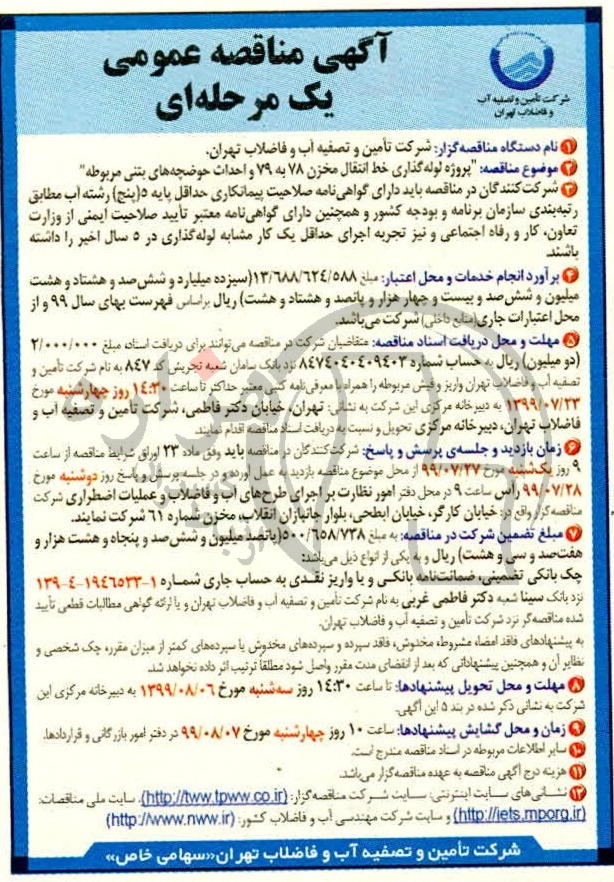 آگهی مناقصه عمومی
یک مرحله‌ای
شرکت تأمین و تصفیه آب
و فاضلاب تهران
۱ نام دستگاه مناقصه‌گزار: شرکت تأمین و تصفیه آب و فاضلاب تهران.
۲ موضوع مناقصه: "پروژه لوله‌گذاری خط انتقال مخزن ۷۸ به ۷۹ و احداث حوضچه‌های بتنی مربوطه"
۳ شرکت‌کنندگان در مناقصه باید دارای گواهی‌نامه صلاحیت پیمانکاری حداقل پایه ۵(پنج) رشته آب مطابق
رتبه‌بندی سازمان برنامه و بودجه کشور و همچنین دارای گواهی‌نامه معتبر تأیید صلاحیت ایمنی از وزارت
تعاون، کار و رفاه اجتماعی و نیز تجربه اجرای حداقل یک کار مشابه لوله‌گذاری در ۵ سال اخیر را داشته
باشند.
۴ برآورد انجام خدمات و محل اعتبار: مبلغ ۱۳/۶۸۸/۶۲۴/۵۸۸(سیزده میلیارد و شش‌صد و هشتاد و هشت
میلیون و شش‌صد و بیست و چهار هزار و پانصد و هشتاد و هشت) ریال براساس فهرست بهای سال ۹۹ و از
محل اعتبارات جاری(منابع داخلی) شرکت می‌باشد.
۵ مهلت و محل دریافت اسناد مناقصه: متقاضیان شرکت در مناقصه می‌توانند برای دریافت اسناد، مبلغ ۲/۰۰۰/۰۰۰
(دو میلیون) ریال به حساب شماره ۸۴۷۴۰۴۰۴۰۹۴۰۳ نزد بانک سامان شعبه تجریش کد ۸۴۷ به نام شرکت تأمین و
تصفیه آب و فاضلاب تهران واریز و فیش مربوطه را همراه با معرفی‌نامه کتبی معتبر حداکثر تا ساعت ۱۴:۳۰ روز چهارشنبه مورخ
۱۳۹۹/۰۷/۲۳ به دبیرخانه مرکزی این شرکت به نشانی: تهران، خیابان دکتر فاطمی، شرکت تأمین و تصفیه آب و
فاضلاب تهران، دبیرخانه مرکزی تحویل و نسبت به دریافت اسناد مناقصه اقدام نمایند.
۶ زمان بازدید و جلسه‌ی پرسش و پاسخ: شرکت‌کنندگان در مناقصه باید وفق ماده ۲۳ اوراق شرایط مناقصه از ساعت
۹ روز یک‌شنبه مورخ ۹۹/۰۷/۲۷ از محل موضوع مناقصه بازدید به عمل آورده و در جلسه پرسش و پاسخ روز دوشنبه مورخ
۹۹/۰۷/۲۸ رأس ساعت ۹ در محل دفتر امور نظارت بر اجرای طرح‌های آب و فاضلاب و عملیات اضطراری شرکت
مناقصه‌گزار واقع در: خیابان کارگر، خیابان ابطحی، بلوار جانبازان انقلاب، مخزن شماره ۶۱ شرکت نمایند.
۷ مبلغ تضمین شرکت در مناقصه: به مبلغ ۵۰۰/۶۵۸/۷۳۸(پانصد میلیون و شش‌صد و پنجاه و هشت هزار و
هفت‌صد و سی و هشت) ریال و به یکی از انواع ذیل می‌باشد:
چک بانکی تضمینی، ضمانت‌نامه بانکی و یا واریز نقدی به حساب جاری شماره ۱-۱۹۴۶۵۳۳-۴-۱۳۹
نزد بانک سینا شعبه دکتر فاطمی غربی به نام شرکت تأمین و تصفیه آب و فاضلاب تهران و یا ارائه گواهی مطالبات قطعی تأیید
شده مناقصه‌گر نزد شرکت تأمین و تصفیه آب و فاضلاب تهران.
به پیشنهادهای فاقد امضاء، مشروط، مخدوش، فاقد سپرده و سپرده‌های مخدوش یا سپرده‌های کمتر از میزان مقرر، چک شخصی و
نظایر آن و همچنین پیشنهاداتی که بعد از انقضای مدت مقرر واصل شود مطلقاً ترتیب اثر داده نخواهد شد.
۸ مهلت و محل تحویل پیشنهادها: تا ساعت ۱۴:۳۰ روز سه‌شنبه مورخ ۱۳۹۹/۰۸/۰۶ به دبیرخانه مرکزی این
شرکت به نشانی ذکر شده در بند ۵ این آگهی.
۹ زمان و محل گشایش پیشنهادها: ساعت ۱۰ روز چهارشنبه مورخ ۹۹/۰۸/۰۷ در دفتر امور بازرگانی و قراردادها.
۱۰ سایر اطلاعات مربوطه در اسناد مناقصه مندرج است.
۱۱ هزینه درج آگهی مناقصه به عهده مناقصه‌گزار می‌باشد.
۱۲ نشانی‌های سایت اینترنتی: سایت شرکت مناقصه‌گزار: (http://tww.tpww.co.ir)، سایت ملی مناقصات:
(http://iets.mporg.ir) و سایت شرکت مهندسی آب و فاضلاب کشور: (http://www.nww.ir)
شرکت تأمین و تصفیه آب و فاضلاب تهران«سهامی خاص»